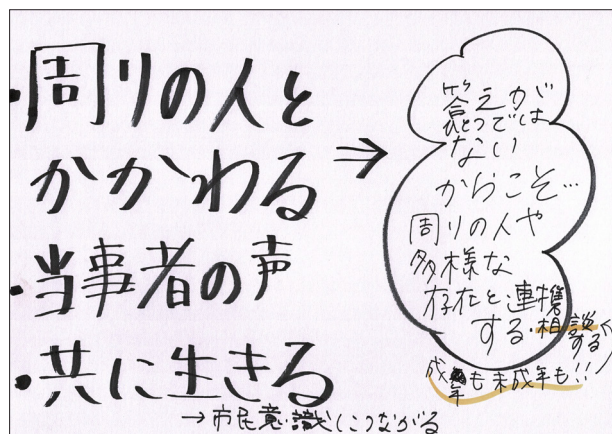 ・周りの人と
かかわる
・当事者の声
・共に生きる
→市民意識につながる
⇒
答えが
ひとつでは
ない
からこそ…
周りの人や
多様な
存在と連携
する・相談
する
成年も未成年も!!